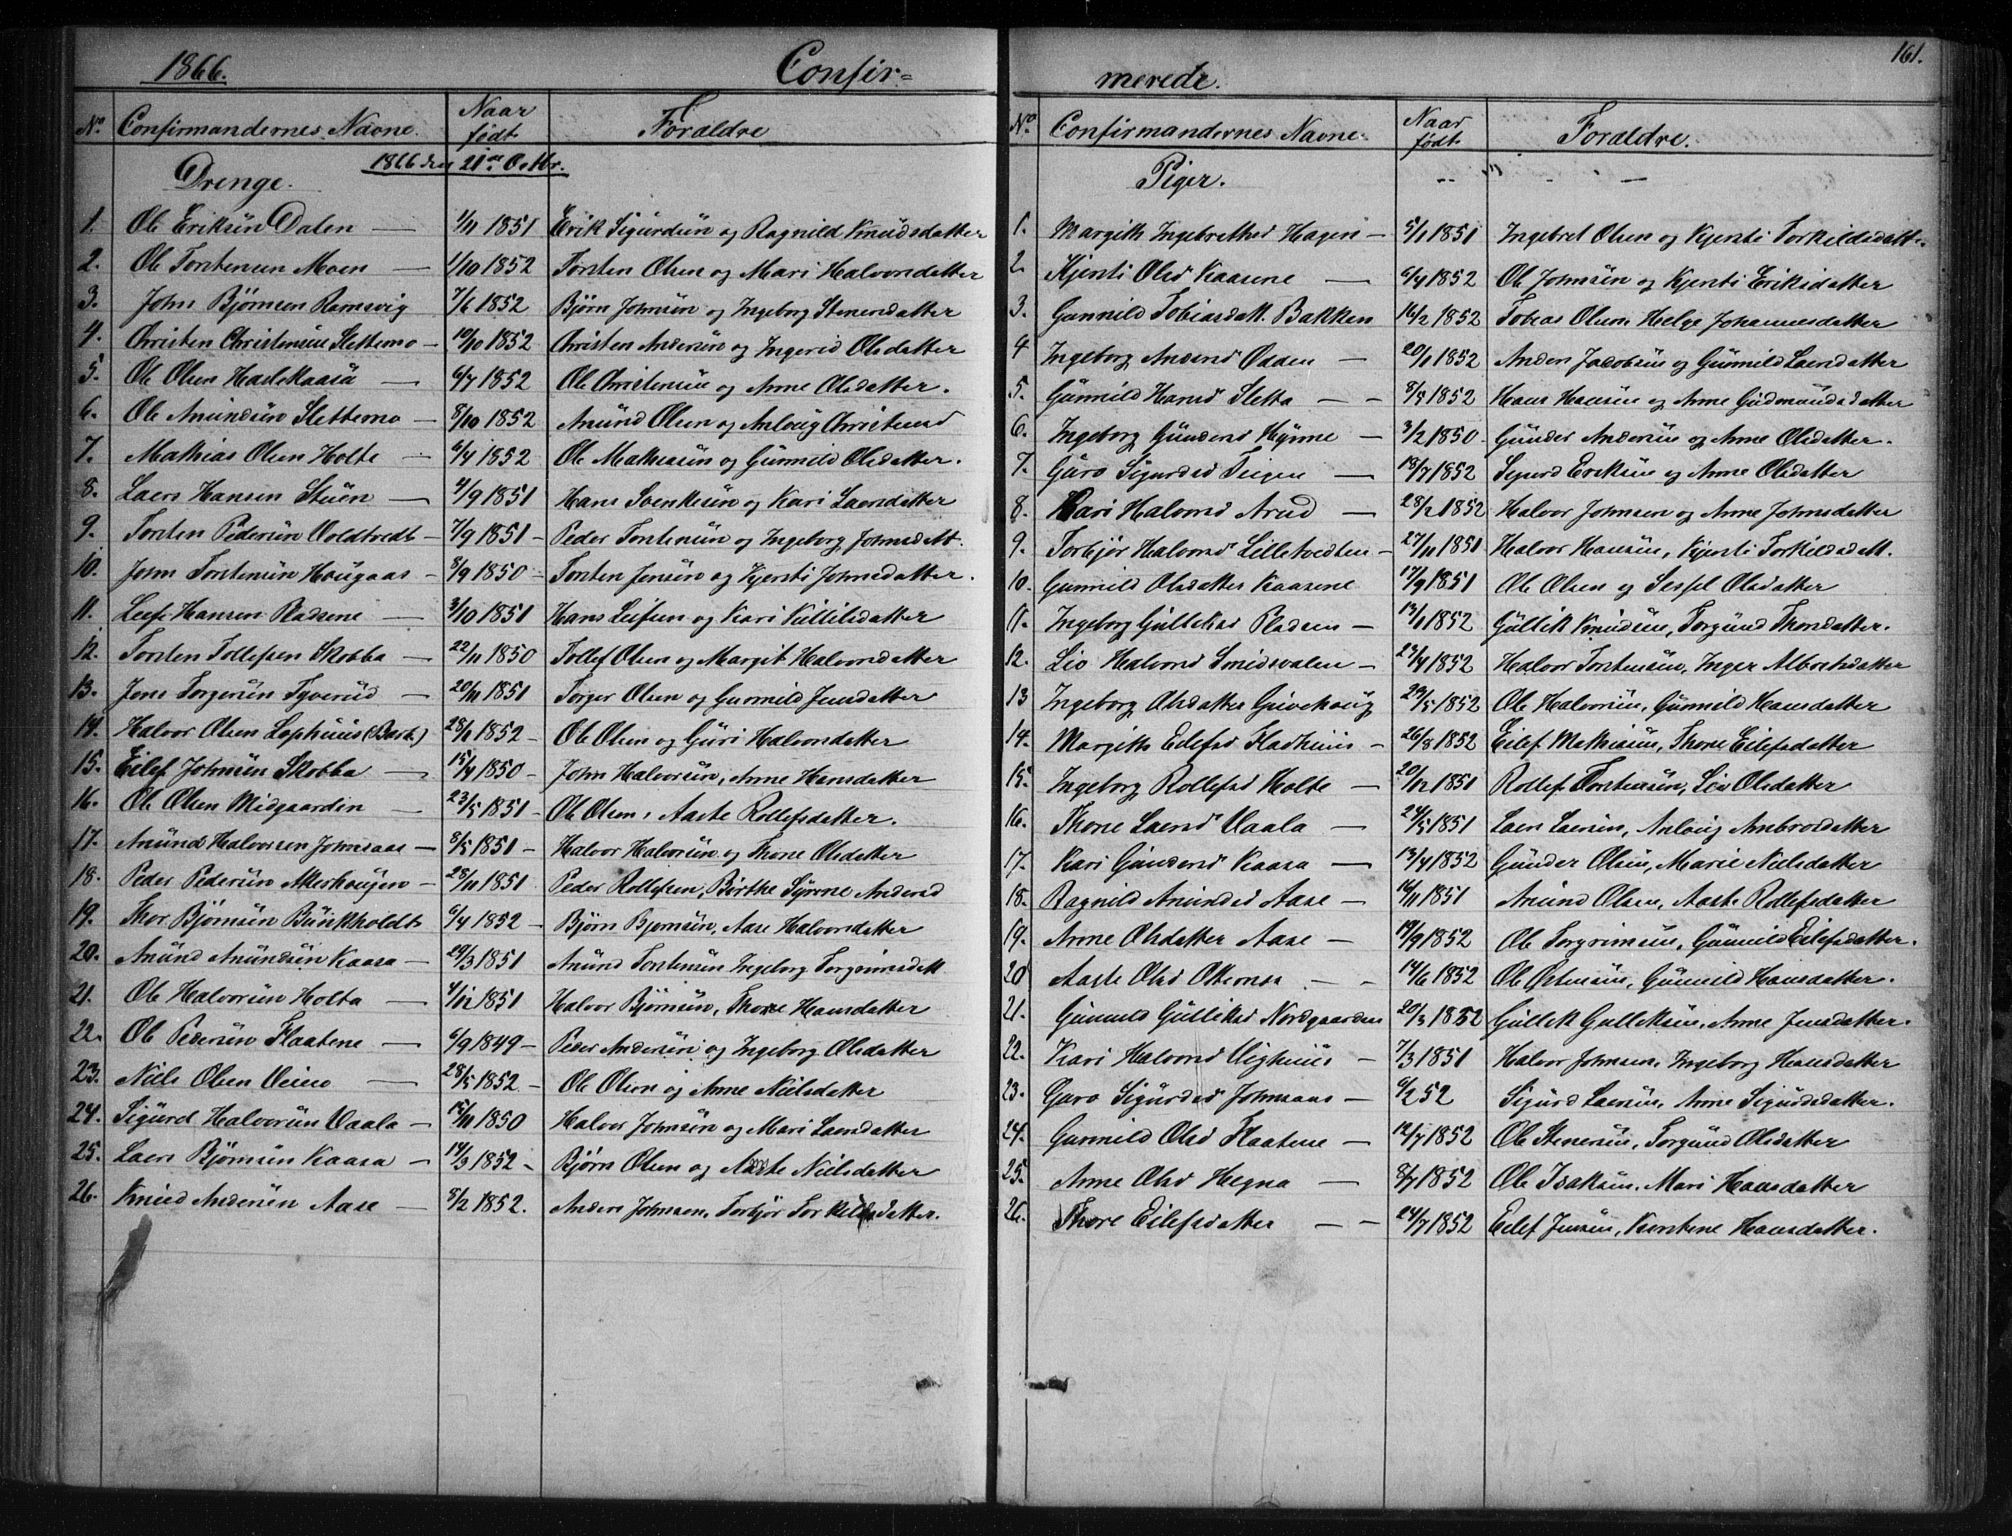 1866.
Confir=
No. Confirmandernes Navne. Naar født Forældre
1866 den 21de Octbr.
Drenge.
1. Ole Eriksen Dalen — 1/11 1851 Erik Sigurdsen og Ragnild Knudsdatter
2. Ole Torstensen Moen — 1/10 1852 Torsten Olsen og Mari Halvorsdatter
3. John Bjørnsen Ramsvig 7/6 1852 Bjørn Johnsen og Ingeborg Stenersdatter
4. Christen Christensen Slettemo — 10/10 1852 Christen Andersen og Ingerid Olsdatter
5. Ole Olsen Haslekaasa — 6/7 1852 Ole Christensen og Anne Olsdatter.
6. Ole Anundsen Slettemo — 8/10 1852 Anund Olsen og Anlaug Christensd
7. Mathias Olsen Holte — 6/4 1852 Ole Mathiasen og Gunnild Olsdatter.
8. Laers Hansen Stuen — 4/9 1851 Hans Svenkesen og Kari Laersdatter
9. Torsten Pedersen Voldtvedt — 7/9 1851 — Peder Torstensen og Ingeborg Johnsdatt.
10. John Torstensen Hougaas — 8/9 1850 — Torsten Jensen og Kjersti Johnsdatter.
11. Leif Hansen Pladsene — 3/10 1851 Hans Leifsen og Kari Killilsdatter
12. Torsten Tollefsen Skobba — 22/11 1850 Tollef Olsen og Margit Halvorsdatter
13. Jens Torgersen Tyverud — 20/11 1851 Torger Olsen og Gunnild Jensdatter
14. Halvor Olsen Lophuus (Bark.) 28/1 1852 — Ole Olsen og Guri Halvorsdatter
15. Eilef Johnsen Skobba — 15/4 1850 — John Halvorsen, Anne Hansdatter
16. Ole Olsen Midgaarden — 23/5 1851 — Ole Olsen, Aaste Rollefsdatter.
17. Anund Halvorsen Johnsaas — 8/5 1851 — Halvor Halvorsen og Thone Olsdatter
18. Peder Pedersen Akerhougen — 28/11 1851 Peder Rollefsen, Birthe Synne Andersd
19. Thor Bjørnsen Buskholdt 6/4 1852 — Bjørn Bjørnsen, Aase Halvorsdatter
20. Anund Anundsen Kaasa — 29/3 1851 Anund Torstensen Ingeborg Torgrimsdatt
21. Ole Halvorsen Holta — 4/12 1851 Halvor Bjørnsen, Thone Hansdatter
22. Ole Pedersen Flaatene — 6/9 1849 — Peder Andersen og Ingeborg Olsdatter
23. Niels Olsen Veum — 28/5 1852 — Ole Olsen og Anne Nielsdatter
24. Sigurd Halvorsen Vaala — 15/11 1850 Halvor Johnsen og Mari Laersdatter
25. Laers Bjørnsen Kaasa — 14/3 1852 — Bjørn Olsen og Aaste Nielsdatter
26. Knud Andersen Aase — 8/2 1852. Anders Johnsen, Torbjør Torkildsdatter.
161.
merede.
No. Confirmandernes Navne. Naar født Forældre.
Piger.
1. Margith Ingebrethsd Hagen — 5/1 1851 Ingebret Olsen og Kjersti Torkildsdatt.
2. Kjersti Olsd Kaasene — 6/4 1852 Ole Johnsen og Kjersti Eriksdatter
3. Gunnild Tobiasdatt. Bakken 16/2 1852 Tobias Olsen Helge Johannesdatter
4 Ingeborg Andersd Dalen — 20/1 1852 Anders Jacobsen og Gunnild Laersdatter
5. Gunnild Hansd Sletta — — 8/8 1852 Hans Hansen og Anne Gudmundsdatter
6. Ingeborg Gundersd Hynne — 3/2 1850 Gunder Andersen og Anne Olsdatter.
7. Guro Sigurdsd Teigen — 18/7 1852 Sigurd Eriksen og Anne Olsdatter
8. Kari Halvorsd Arud — 28/2 1852 Halvor Johnsen og Anne Johnsdatter
9. Torbjør Halvorsd Lilletvedten — 27/11 1851 Halvor Hansen, Kjersti Torkildsdatt.
10. Gunnild Olsdatter Kaasene 17/9 1851 Ole Olsen og Sessel Olsdatter
11. Ingeborg Gulliksd Pladsen — 13/1 1852 Gullik Knudsen, Torgund Thorsdatter.
12. Liv Halvorsd Smidsvalen — 23/4 1852 Halvor Torstensen, Inger Albretsdatter
13 Ingeborg Olsdatter Grivehoug 29/5 1852 Ole Halvorsen, Gunnild Hansdatter
14. Margith Eilefsd Fladhuus — 26/8 1852 Eilef Mathiasen, Thone Eilefsdatter
15. Ingeborg Rollefsd Holte — 20/12 1851 Rollef Torstensen, Liv Olsdatter
16. Thone Laersd Vaala — 24/5 1851 Laers Laersen, Anlaug Ambrosdatter
17. Kari Gundersd Kaasa — 13/4 1852 Gunder Olsen, Marie Nielsdatter
18. Ragnild Anundsd Aase — 16/11 1851 Anund Olsen, Aaste Rollefsdatter
19. Anne Olsdatter Aase — 19/9 1852 Ole Torgrimsen, Gunnild Eilefsdatter.
20 Aaste Olsd Oternes — 14/6 1852 Ole Østensen, Gunnild Hansdatter.
21. Gunnild Gulliksd Nordgaarden 20/3 1852 Gullik Gulliksen, Anne Jensdatter.
22. Kari Halvorsd Vighuus — 7/3 1851 Halvor Johnsen, Ingeborg Hansdatter
23. Guro Sigurdsd Johnsaas — 6/2 52 Sigurd Laersen, Anne Sigurdsdatter.
24. Gunnild Olsd Flaatene — 12/7 1852 Ole Stenersen, Torgund Olsdatter
25. Anne Olsd Hegna — 8/7 1852 Ole Isaksen, Mari Hansdatter
26. Thore Eilefsdatter — — 24/7 1852 Eilef Jensen, Kirstene Hansdatter.